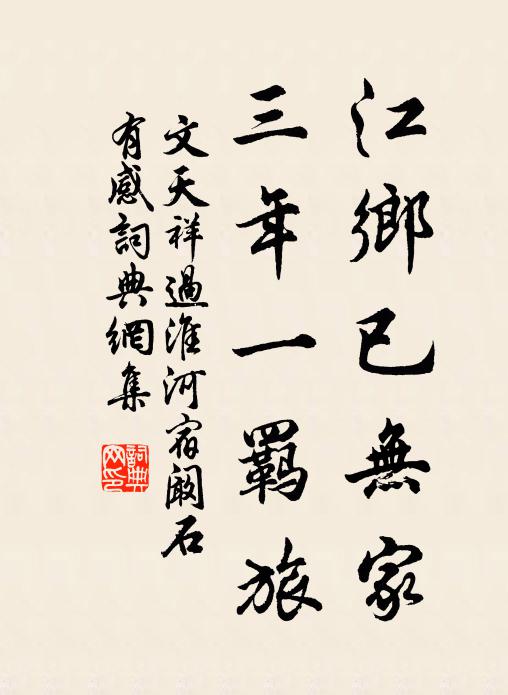 江鄉已無家
三年一羈旅
文天祥過淮河宿闞石
有感詞典網集
詞典
网印